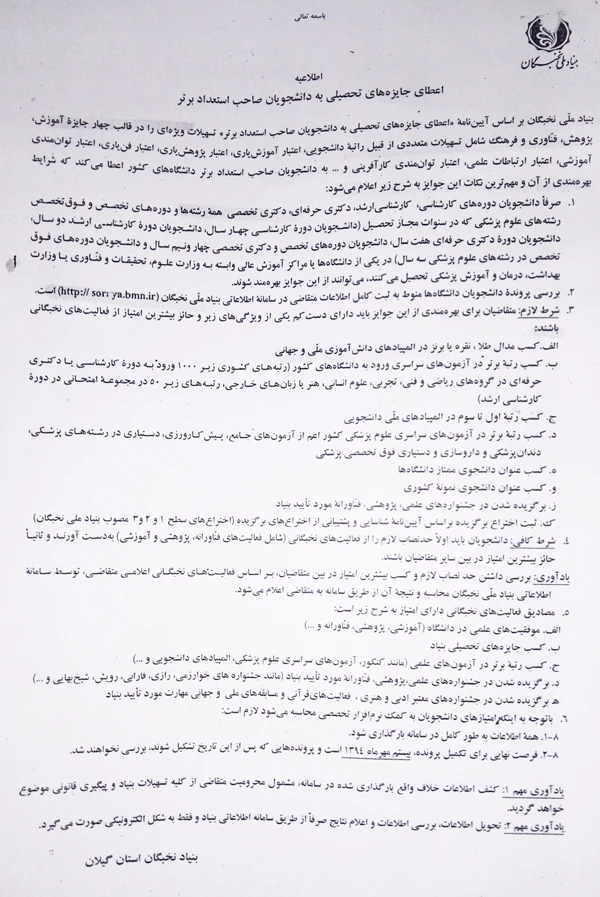 باسمه تعالی
بنیاد ملی نخبگان
اطلاعیه
اعطای جایزه‌های تحصیلی به دانشجویان صاحب استعداد برتر
بنیاد ملّی نخبگان بر اساس آیین‌نامهٔ «اعطای جایزه‌های تحصیلی به دانشجویان صاحب استعداد برتر» تسهیلات ویژه‌ای را در قالب چهار جایزهٔ آموزش،
پژوهش، فنّاوری و فرهنگ شامل تسهیلات متعددی از قبیل راتبهٔ دانشجویی، اعتبار آموزش‌یاری، اعتبار پژوهش‌یاری، اعتبار فن‌یاری، اعتبار توان‌مندی
آموزشی، اعتبار ارتباطات علمی، اعتبار توان‌مندی کارآفرینی و ... به دانشجویان صاحب استعداد برتر دانشگاه‌های کشور اعطا می‌کند که شرایط
بهره‌مندی از آن و مهم‌ترین نکات این جوایز به شرح زیر اعلام می‌شود:
۱. صرفاً دانشجویان دوره‌های کارشناسی، کارشناسی‌ارشد، دکتری حرفه‌ای، دکتری تخصصی همهٔ رشته‌ها و دوره‌های تخصص و فوق‌تخصص
رشته‌های علوم پزشکی که در سنوات مجاز تحصیل (دانشجویان دورهٔ کارشناسی چهار سال، دانشجویان دورهٔ کارشناسی ارشد دو سال،
دانشجویان دورهٔ دکتری حرفه‌ای هفت سال، دانشجویان دوره‌های تخصص و دکتری تخصصی چهار ونیم سال و دانشجویان دوره‌های فوق
تخصص در رشته‌های علوم پزشکی سه سال) در یکی از دانشگاه‌ها یا مراکز آموزش عالی وابسته به وزارت علوم، تحقیقات و فنّاوری یا وزارت
بهداشت، درمان و آموزش پزشکی تحصیل می‌کنند، می‌توانند از این جوایز بهره‌مند شوند.
۲. بررسی پروندهٔ دانشجویان دانشگاه‌ها منوط به ثبت کامل اطلاعات متقاضی در سامانهٔ اطلاعاتی بنیاد ملّی نخبگان (http:// ya.bmn.ir) است.
۳. شرط لازم: متقاضیان برای بهره‌مندی از این جوایز باید دارای دست‌کم یکی از ویژگی‌های زیر و حائز بیشترین امتیاز از فعالیت‌های نخبگانی
باشند:
الف. کسب مدال طلا، نقره یا برنز در المپیادهای دانش‌آموزی ملّی و جهانی
ب. کسب رتبهٔ برتر در آزمون‌های سراسری ورود به دانشگاه‌های کشور (رتبه‌های کشوری زیر ۱۰۰۰ ورود به دورهٔ کارشناسی یا دکتری
حرفه‌ای در گروه‌های ریاضی و فنی، تجربی، علوم انسانی، هنر یا زبان‌های خارجی، رتبه‌های زیر ۵۰ در مجموعهٔ امتحانی در دورهٔ
کارشناسی ارشد)
ج. کسب رتبهٔ اول تا سوم در المپیادهای ملّی دانشجویی
د. کسب رتبهٔ برتر در آزمون‌های سراسری علوم پزشکی کشور اعم از آزمون‌های جامع، پیش‌کارورزی، دستیاری در رشته‌های پزشکی،
دندان‌پزشکی و داروسازی و دستیاری فوق تخصصی پزشکی
ه. کسب عنوان دانشجوی ممتاز دانشگاه‌ها
و. کسب عنوان دانشجوی نمونهٔ کشوری
ز. برگزیده شدن در جشنواره‌های علمی، پژوهشی، فنّاورانهٔ مورد تأیید بنیاد
ک. ثبت اختراع برگزیده براساس آیین‌نامهٔ شناسایی و پشتیبانی از اختراع‌های برگزیده (اختراع‌های سطح ۱ و ۲ و ۳ مصوب بنیاد ملی نخبگان)
۴. شرط کافی: دانشجویان باید اولاً حدنصاب لازم را از فعالیت‌های نخبگانی (شامل فعالیت‌های فنّاورانه، پژوهشی و آموزشی) به‌دست آورند و ثانیاً
حائز بیشترین امتیاز در بین سایر متقاضیان باشند.
یادآوری: بررسی داشتن حد نصاب لازم و کسب بیشترین امتیاز در بین متقاضیان، بر اساس فعالیت‌های نخبگانی اعلامی متقاضی، توسط سامانهٔ
اطلاعاتی بنیاد ملّی نخبگان محاسبه و نتیجهٔ آن از طریق سامانه به متقاضی اعلام می‌شود.
۵. مصادیق فعالیت‌های نخبگانی دارای امتیاز به شرح زیر است:
الف. موفقیت‌های علمی در دانشگاه (آموزشی، پژوهشی، فنّاورانه و ...)
ب. کسب جایزه‌های تحصیلی بنیاد
ج. کسب رتبهٔ برتر در آزمون‌های علمی (مانند کنکور، آزمون‌های سراسری علوم پزشکی، المپیادهای دانشجویی و ...)
د. برگزیده شدن در جشنواره‌های علمی، پژوهشی، فنّاورانهٔ مورد تأیید بنیاد (مانند جشنواره های خوارزمی، رازی، فارابی، رویش، شیخ‌بهایی و ...)
ه. برگزیده شدن در جشنواره‌های معتبر ادبی و هنری، فعالیت‌های قرآنی و مسابقه‌های ملی و جهانی مهارت مورد تأیید بنیاد
۶. باتوجه به اینکه امتیازهای دانشجویان به کمک نرم‌افزار تخصصی محاسبه می‌شود لازم است:
۸-۱. همهٔ اطلاعات به طور کامل در سامانه بارگذاری شود.
۸-۲. فرصت نهایی برای تکمیل پرونده، بیستم مهرماه ۱۳۹۴ است و پرونده‌هایی که پس از این تاریخ تشکیل شوند، بررسی نخواهند شد.
یادآوری مهم ۱: کشف اطلاعات خلاف واقع بارگذاری شده در سامانه، مشمول محرومیت متقاضی از کلیه تسهیلات بنیاد و پیگیری قانونی موضوع
خواهد گردید.
یادآوری مهم ۲: تحویل اطلاعات، بررسی اطلاعات و اعلام نتایج صرفاً از طریق سامانه اطلاعاتی بنیاد و فقط به شکل الکترونیکی صورت می‌گیرد.
بنیاد نخبگان استان گیلان